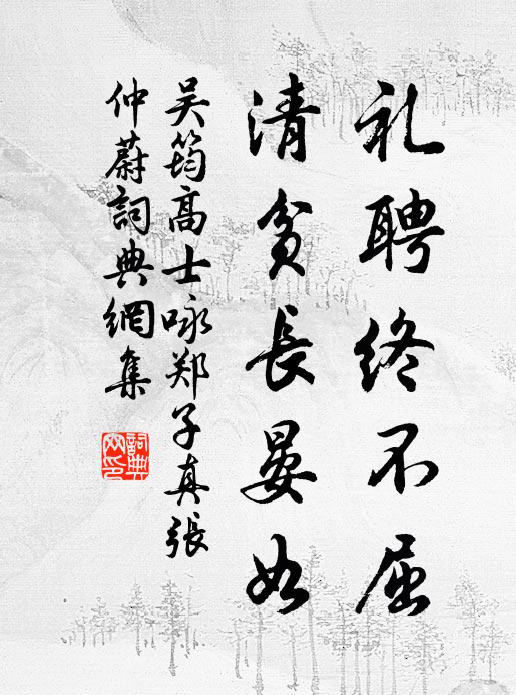 礼聘终不屈
清贫长晏如
吴筠高士咏郑子真张
仲蔚詞典網集
詞典網印